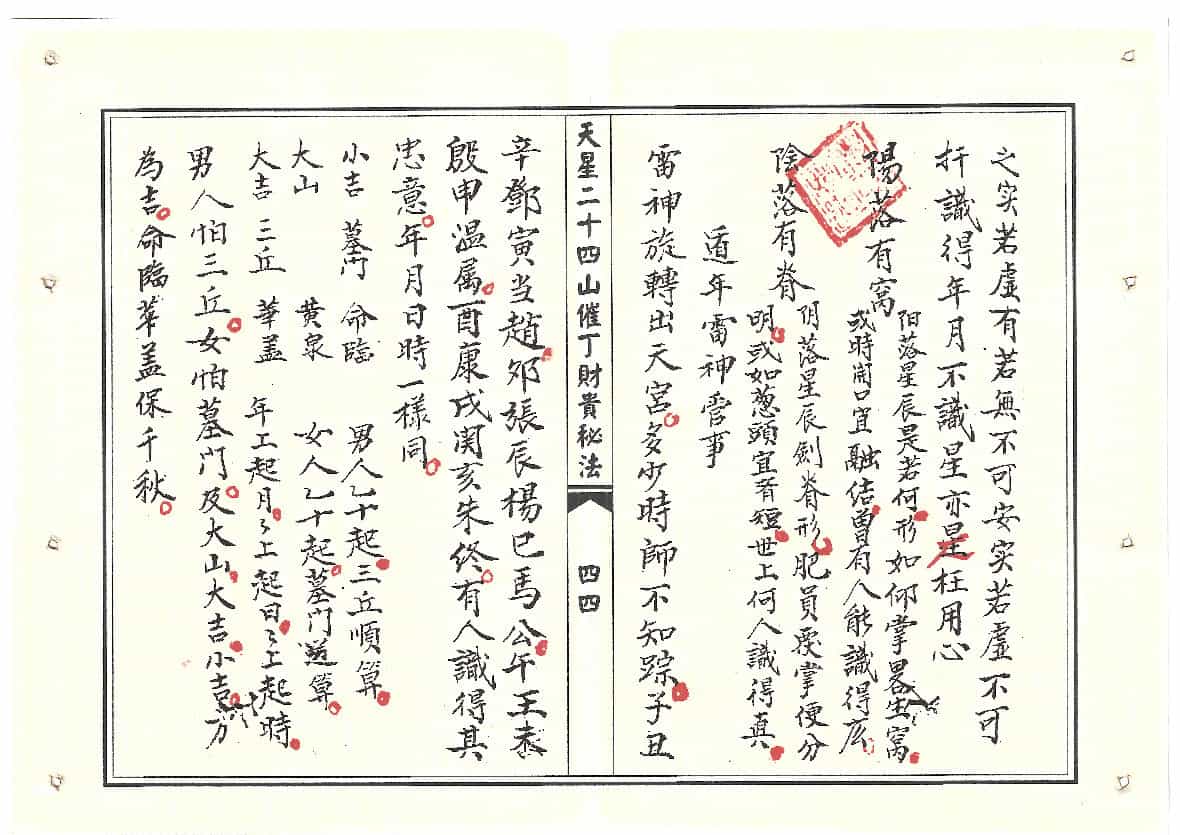 之实若虚有若無不可安实若虚不可
扦識得年月不識星亦是枉用心
陽落有窩
阳落星辰是若何形如仰掌畧生窩
或時開口宜融結曽有人能識得広
陰落有脊
阴落星辰劍脊形肥員覆掌便分
明或如葱頭宜看短世上何人識得真
遁年雷神管事
雷神旋轉出天宮多少時師不知踪子丑
天星二十四山催丁財貴秘法
四四
辛鄧寅当趙夘張辰楊巳馬公午王泰
殷申温属酉康戌関亥朱終有人識得其
忠意年月日時一樣同
小吉 墓門 命臨 男人乙十起三丘順算
大山 黄泉 女人乙十起墓門逆算
大吉 三丘 華盖 年上起月々上起日々上起時
男人怕三丘女怕墓門及大山大吉小吉方
為吉命臨華盖保千秋